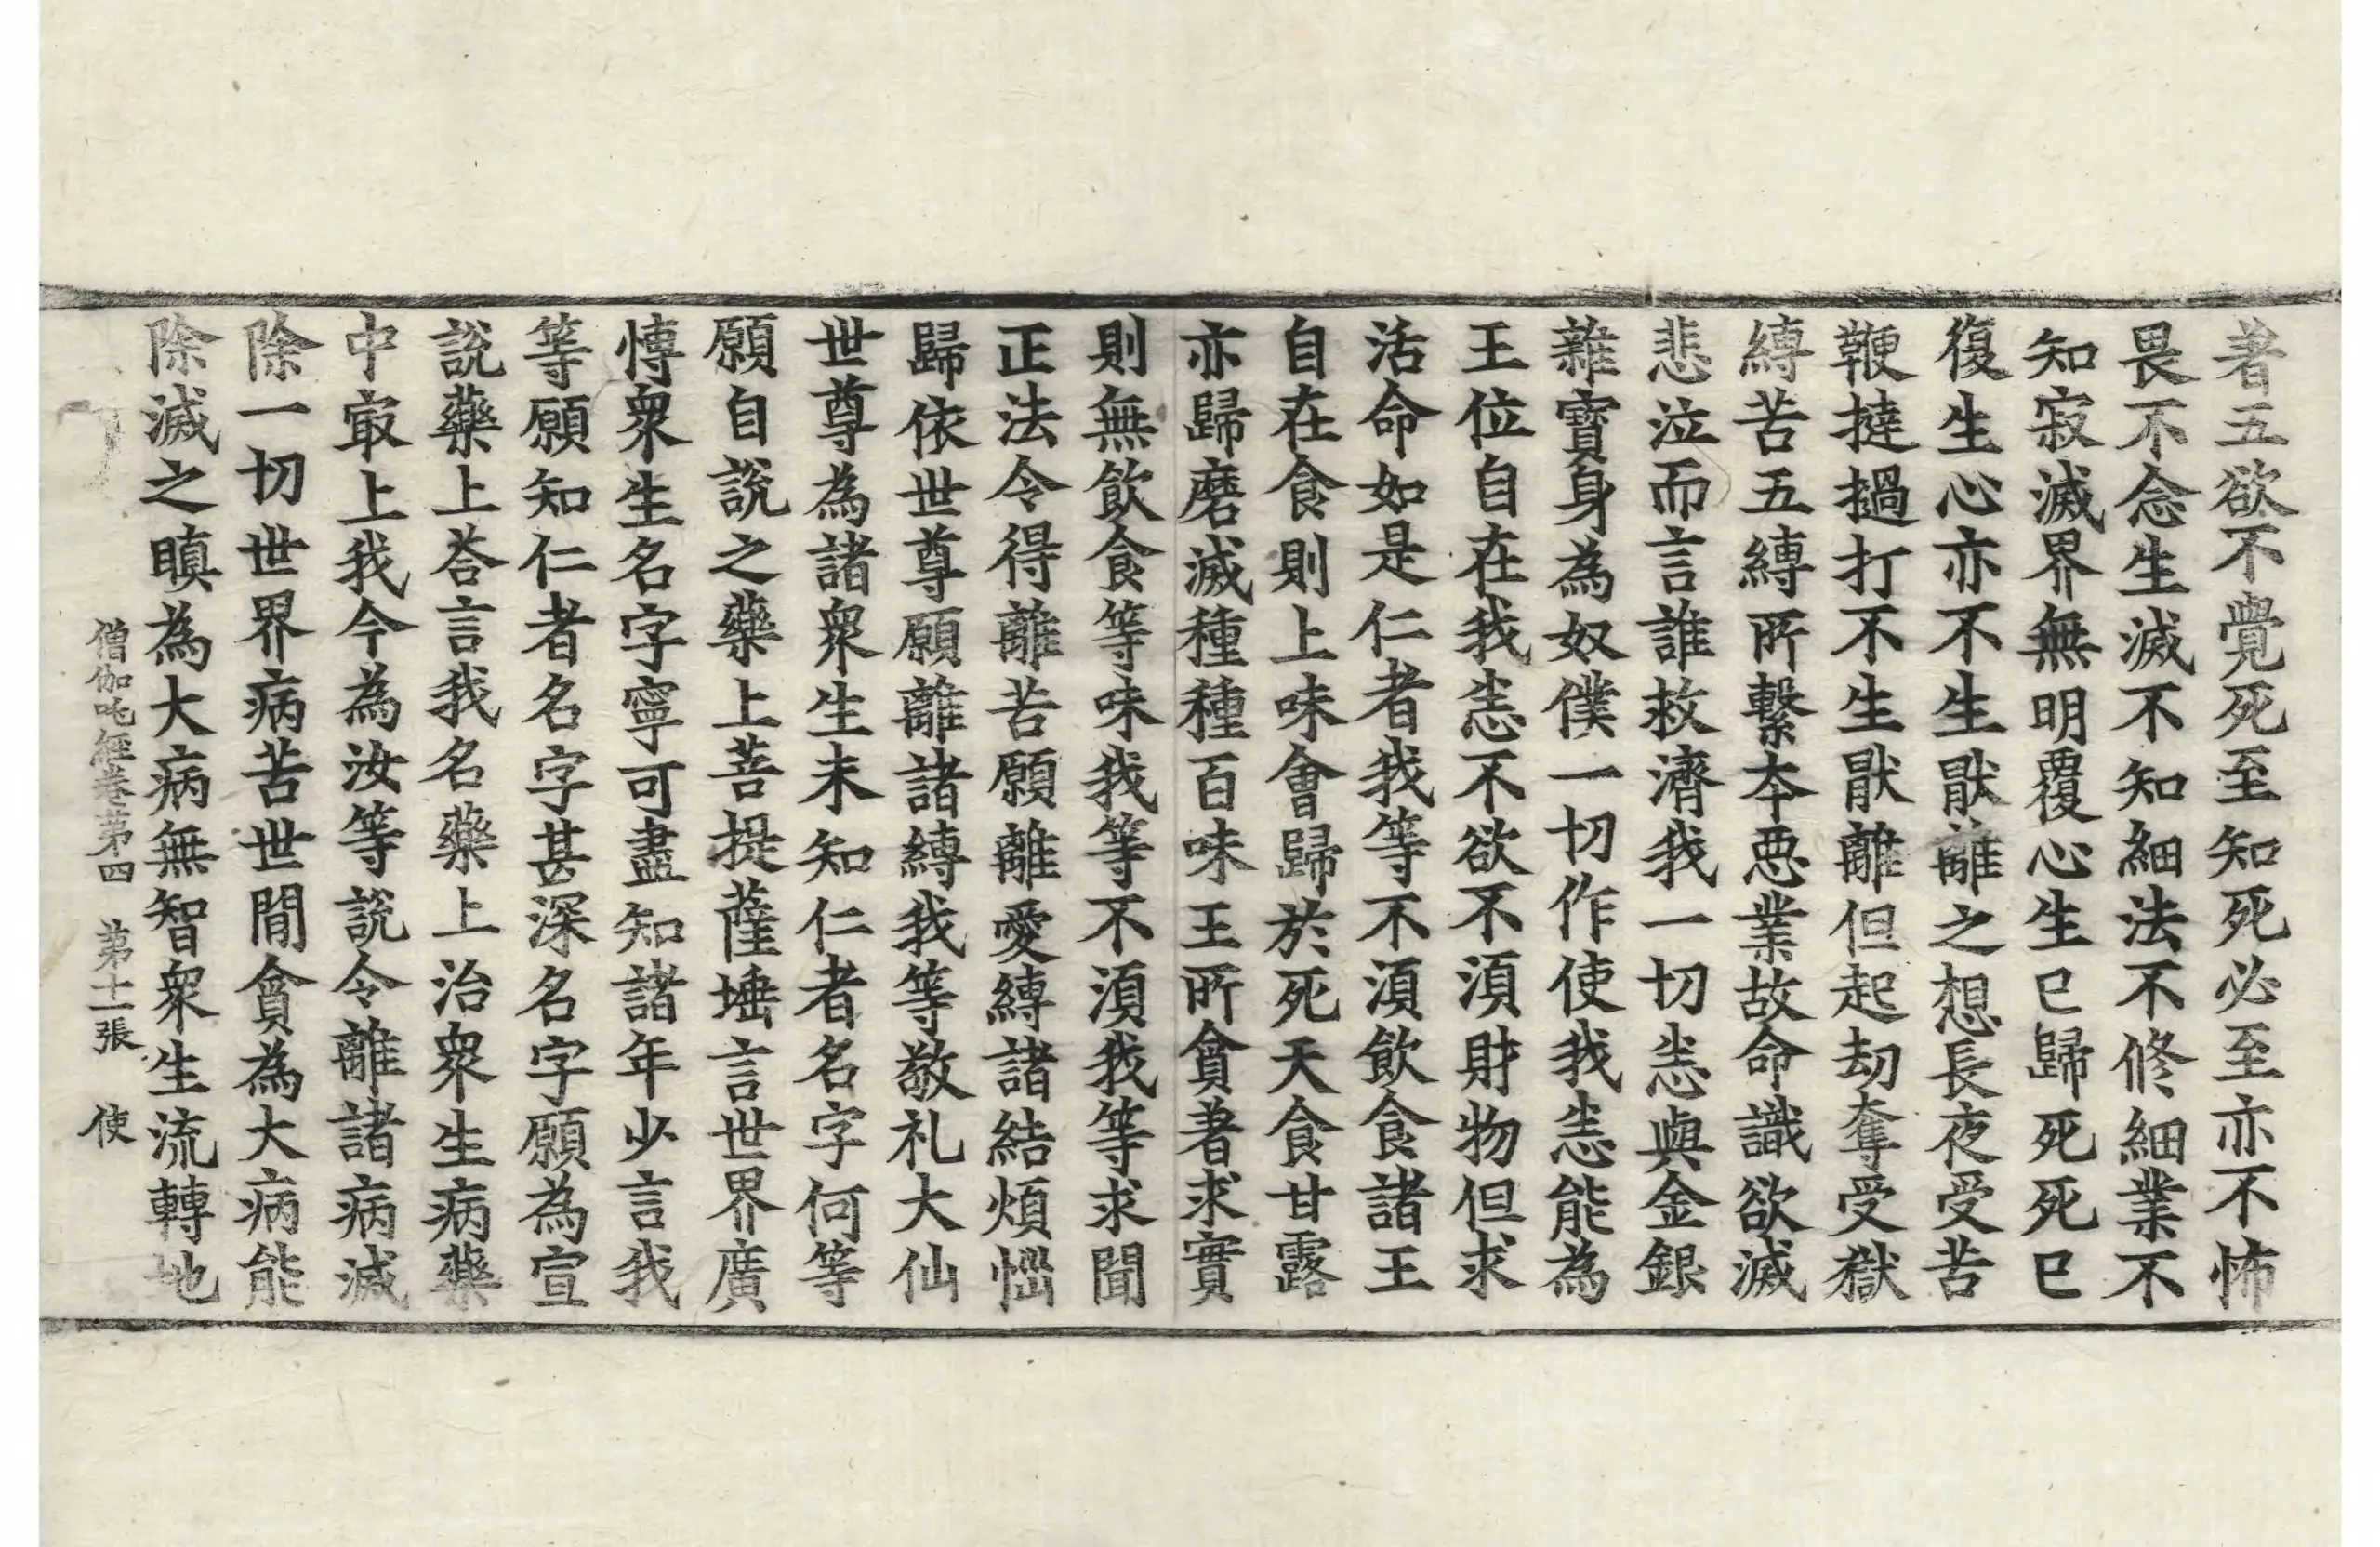 著五欲不覺死至知死必至亦不怖
畏不念生滅不知細法不修細業不
知寂滅界無明覆心生已歸死死已
復生心亦不生猒離之想長夜受苦
鞭撻撾打不生猒離但起劫奪受獄
縛苦五縛所繫本惡業故命識欲滅
悲泣而言誰救濟我一切恙與金銀
雜寶身為奴僕一切作使我恙能為
王位自在我恙不欲不湏財物但求
活命如是仁者我等不湏飲食諸王
自在食則上味會歸於死天食甘露
亦歸磨滅種種百味王所貪著求實
則無飲食等味我等不湏我等求聞
正法令得離苦願離愛縛諸結煩惱
歸依世尊願離諸縛我等敬礼大仙
世尊為諸衆生未知仁者名字何等
願自說之藥上菩提薩埵言世界廣
愽衆生名字寧可盡知諸年少言我
等願知仁者名字甚深名字願為宣
說藥上荅言我名藥上治衆生病藥
中㝡上我今為汝等說令離諸病滅
除一切世界病苦世間貪為大病能
除滅之瞋為大病無智衆生流轉地
僧伽吒經卷苐四 苐十一張 使